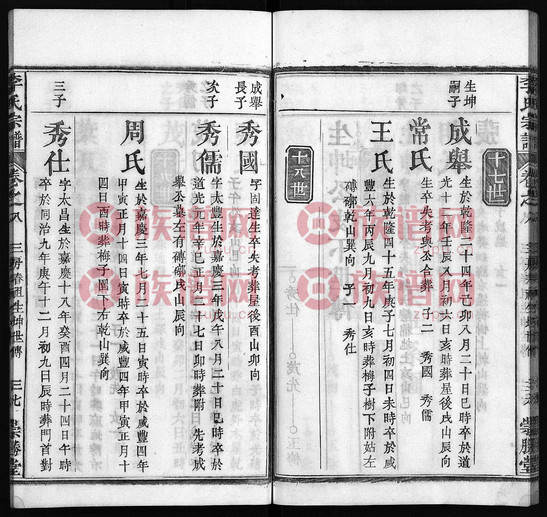 李氏宗譜
卷之八
崇勝堂
十七世
生坤嗣子
成舉
生於乾隆二十四年己卯八月二十日巳時卒於道
光十二年壬辰八月初六日亥時葬屋後戌山辰向
常氏
生卒失考與公合葬 子二 秀國 秀儒
王氏
生於乾隆四十五年庚子七月初四日未時卒於咸
豐六年丙辰九月初九日亥時葬梅子樹下附姑左
磚槨乾山巽向 子一 秀仕
十八世
成舉長子
秀國
字固達生卒失考葬屋後酉山卯向
次子
秀儒
字太豐生於嘉慶三年戊午八月二十日巳時卒於
道光元年辛巳正月二十七日卯時葬附 先考成
舉公墓左有磚槨戌山辰向
周氏
生於嘉慶三年七月二十五日寅時卒於咸豐四年
甲寅正月十四日寅時卒於咸豐四年甲寅正月十
四日酉時葬梅子園下右乾山巽向
三子
秀仕
字太昌生於嘉慶十八年癸酉四月二十四日午時
卒於同治九年庚午十二月初九日辰時葬門首對
李氏宗譜
卷之八
三房春祖生坤世傳
崇勝堂
族谱网